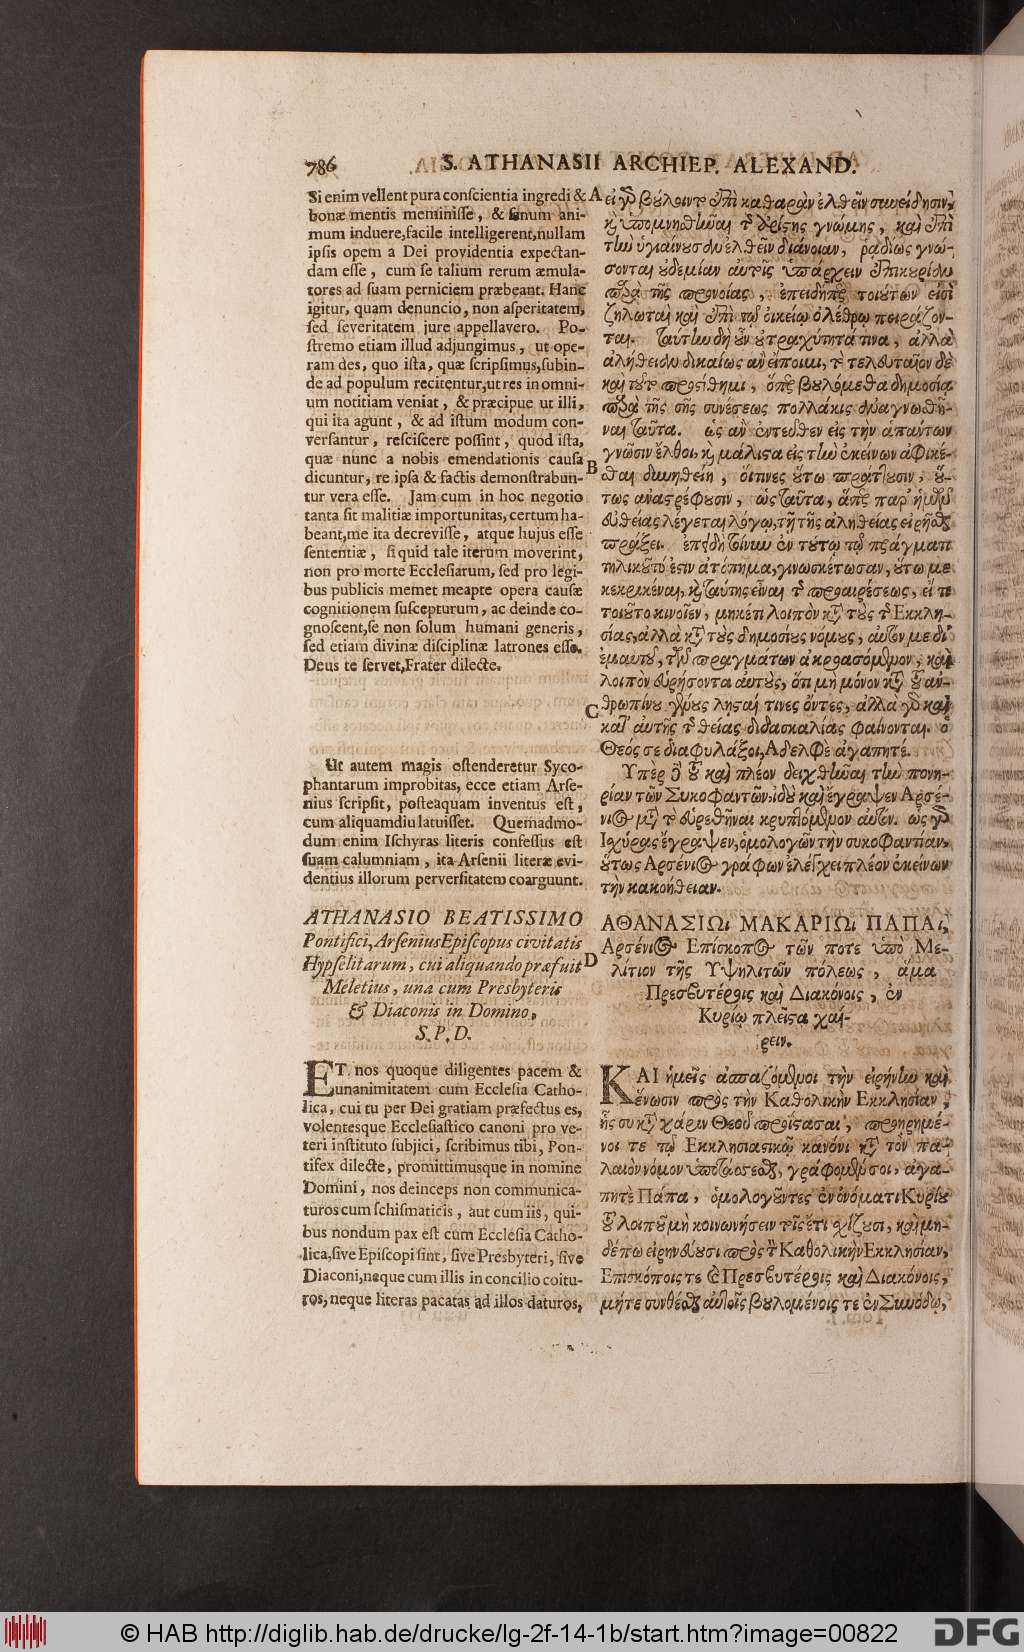 786 S. ATHANASII ARCHIEP. ALEXAND.
Si enim vellent pura conscientia ingredi &
bonæ mentis meminisse, & sanum ani-
mum induere, facile intelligerent, nullam
ipsis opem a Dei providentia expectan-
dam esse, cum se talium rerum æmula-
tores ad suam perniciem præbeant. Hanc
igitur, quam denuncio, non asperitatem,
sed severitatem jure appellavero. Po-
stremo etiam illud adjungimus, ut ope-
ram des, quo ista, quæ scripsimus, subin-
de ad populum recitentur, ut res in omni-
um notitiam veniat, & præcipue ut illi,
qui ita agunt, & ad istum modum con-
versantur, resciscere possint, quod ista,
quæ nunc a nobis emendationis causa
dicuntur, re ipsa & factis demonstrabun-
tur vera esse. Jam cum in hoc negotio
tanta sit malitiæ importunitas, certum ha-
beant, me ita decrevisse, atque hujus esse
sententiæ, si quid tale iterum moverint,
non pro morte Ecclesiarum, sed pro legi-
bus publicis memet meapte opera causæ
cognitionem suscepturum, ac deinde co-
gnoscent, se non solum humani generis,
sed etiam divinæ disciplinæ latrones esse.
Deus te servet, Frater dilecte.
Ut autem magis ostenderetur Syco-
phantarum improbitas, ecce etiam Arse-
nius scripsit, posteaquam inventus est,
cum aliquamdiu latuisset. Quemadmo-
dum enim Ischyras literis confessus est
suam calumniam, ita Arsenii literæ evi-
dentius illorum perversitatem coarguunt.
ATHANASIO BEATISSIMO
Pontifici, Arsenius Episcopus civitatis
Hypselitarum, cui aliquando præfuit
Meletius, una cum Presbyteris
& Diaconis in Domino,
S. P. D.
ET nos quoque diligentes pacem &
unanimitatem cum Ecclesia Catho-
lica, cui tu per Dei gratiam præfectus es,
volentesque Ecclesiastico canoni pro ve-
teri instituto subjici, scribimus tibi, Pon-
tifex dilecte, promittimusque in nomine
Domini, nos deinceps non communica-
turos cum schismaticis, aut cum iis, qui-
bus nondum pax est cum Ecclesia Catho-
lica, sive Episcopi sint, sive Presbyteri, sive
Diaconi, neque cum illis in concilio coitu-
ros, neque literas pacatas ad illos daturos,
A
B
C
D
εἰ γὰρ βούλοιντο ἐπὶ καθαρὰν ἐλθεῖν συνείδησιν,
καὶ ὑπομνησθῆναι τῆς ἀρίστης γνώμης, καὶ ἐπὶ
τὴν ὑγιαίνουσαν ἐλθεῖν διάνοιαν, ῥᾳδίως γνώ-
σονται οὐδεμίαν αὐτοῖς ὑπάρχειν ἐπικουρίαν
παρὰ τῆς προνοίας, ἐπειδήπερ τοιούτων εἰσὶ
ζηλωταὶ καὶ ἐπὶ τῷ οἰκείῳ ὀλέθρῳ πειράζον-
ται. ταύτην δὴ οὖν οὐ τραχύτητά τινα, ἀλλὰ
ἀλήθειαν δικαίως ἂν εἴποιμι, τὸ τελευταῖον δὲ
καὶ τοῦτο προστίθημι, ὅπερ βουλόμεθα δημοσίᾳ
παρὰ τῆς σῆς συνέσεως πολλάκις ἀναγνωθῆ-
ναι ταῦτα. ὡς ἂν ἐντεῦθεν εἰς τὴν ἁπάντων
γνῶσιν ἔλθοι, καὶ μάλιστα εἰς τὴν ἐκείνων ἀφικέ-
σθαι δυνηθείη, οἵτινες οὕτω πράττουσιν, οὕ-
τως ἀναστρέφουσιν, ὡς ταῦτα, ἅπερ παρ' ἡμῶν
εὐθείας λέγεται λόγῳ, τῇ τῆς ἀληθείας εἰρῆσθαι
πράξει. ἐπειδὴ τοίνυν ἐν τούτῳ τῷ πράγματι
τηλικοῦτό ἐστιν ἀτόπημα, γινωσκέτωσαν, οὕτω με
κεκρικέναι, καὶ ταύτης εἶναι τῆς προαιρέσεως, εἴ τι
τοιοῦτο κινοῖεν, μηκέτι λοιπὸν κατὰ τοὺς τῆς Ἐκκλη-
σίας, ἀλλὰ κατὰ τοὺς δημοσίους νόμους, αὐτόν με δι'
ἐμαυτοῦ, τῶν πραγμάτων ἀκροασόμενον, καὶ
λοιπὸν εὑρήσονται αὐτοὺς, ὅτι μὴ μόνον κατὰ τοῦ ἀν-
θρωπίνου γένους λῃσταί τινες ὄντες, ἀλλὰ γὰρ καὶ
κατ' αὐτῆς τῆς θείας διδασκαλίας φαίνονται. ὁ
Θεός σε διαφυλάξοι, Ἀδελφὲ ἀγαπητέ.
Ὑπὲρ δὲ τοῦ καὶ πλέον δειχθῆναι τὴν πονη-
ρίαν τῶν Συκοφαντῶν, ἰδοὺ καὶ ἔγραψεν Ἀρσέ-
νιος μετὰ τὸ εὑρεθῆναι κρυπτόμενον αὐτόν. ὡς γὰρ
Ἰσχύρας ἔγραψεν, ὁμολογῶν τὴν συκοφαντίαν,
οὕτως Ἀρσένιος γράφων ἐλέγχει πλέον ἐκείνων
τὴν κακοήθειαν.
ΑΘΑΝΑΣΙΩι ΜΑΚΑΡΙΩι ΠΑΠΑι,
Ἀρσένιος Ἐπίσκοπος τῶν ποτε ὑπὸ Με-
λίτιον τῆς Ὑψηλιτῶν πόλεως, ἅμα
Πρεσβυτέροις καὶ Διακόνοις, ἐν
Κυρίῳ πλεῖστα χαί-
ρειν.
ΚΑΙ ἡμεῖς ἀσπαζόμενοι τὴν εἰρήνην καὶ
ἕνωσιν πρὸς τὴν Καθολικὴν Ἐκκλησίαν,
ἧς συ κατὰ χάριν Θεοῦ προΐστασαι, προῃρημέ-
νοι τε τῷ Ἐκκλησιαστικῷ κανόνι κατὰ τὸν πα-
λαιὸν νόμον ὑποτάσσεσθαι, γράφομέν σοι, ἀγα-
πητὲ Πάπα, ὁμολογοῦντες ἐν ὀνόματι Κυρίου
τοῦ λοιποῦ μὴ κοινωνήσειν τοῖς ἔτι σχίζουσι, καὶ μη-
δέπω εἰρηνεύουσι πρὸς τὴν Καθολικὴν Ἐκκλησίαν,
Ἐπισκόποις τε καὶ Πρεσβυτέροις καὶ Διακόνοις,
μήτε συνθέσθαι αὐτοῖς βουλομένοις τε ἐν Συνόδῳ,
© HAB http://diglib.hab.de/drucke/lg-2f-14-1b/start.htm?image=00822
DFG